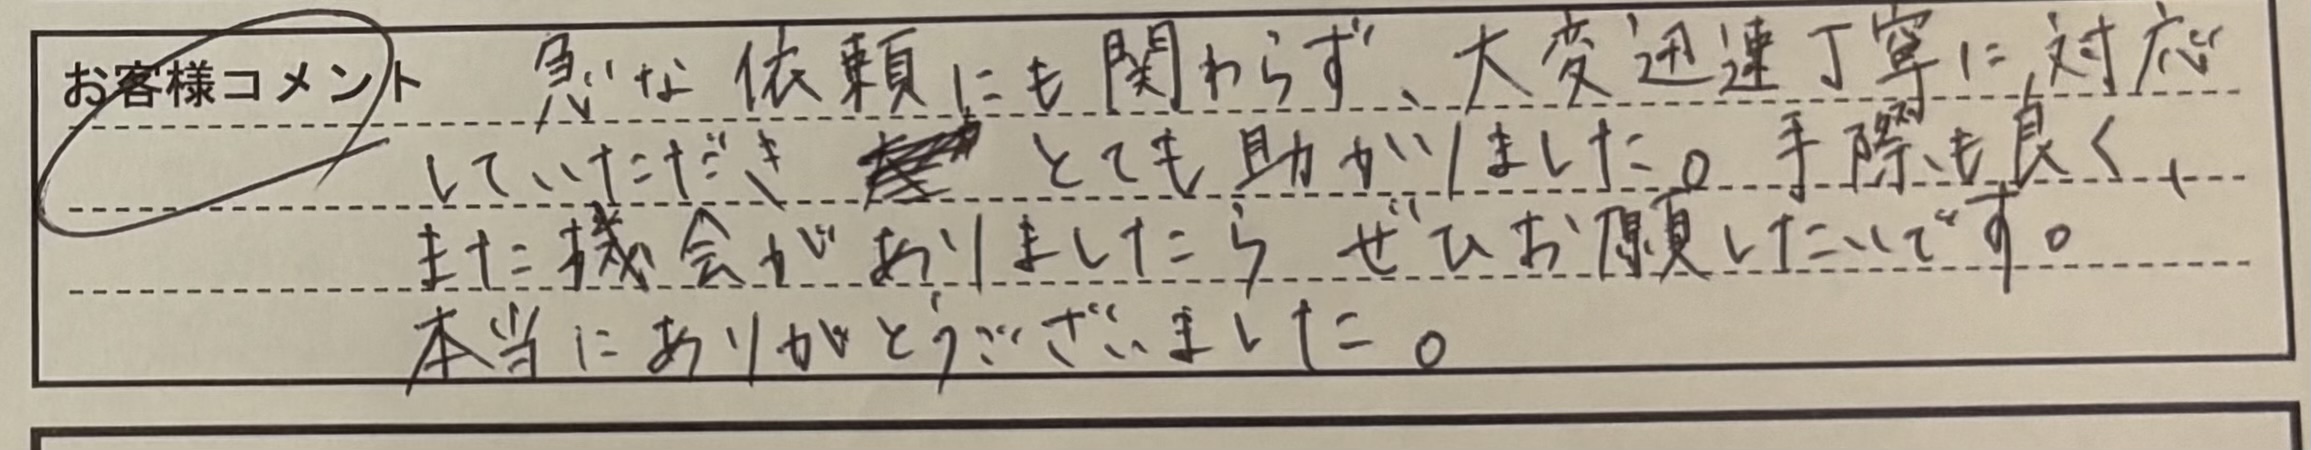 お客様コメント 急な依頼にも関わらず、大変迅速丁寧に対応
していただき とても助かりました。手際も良く、
また機会がありましたら ぜひお願したいです。
本当にありがとうございました。